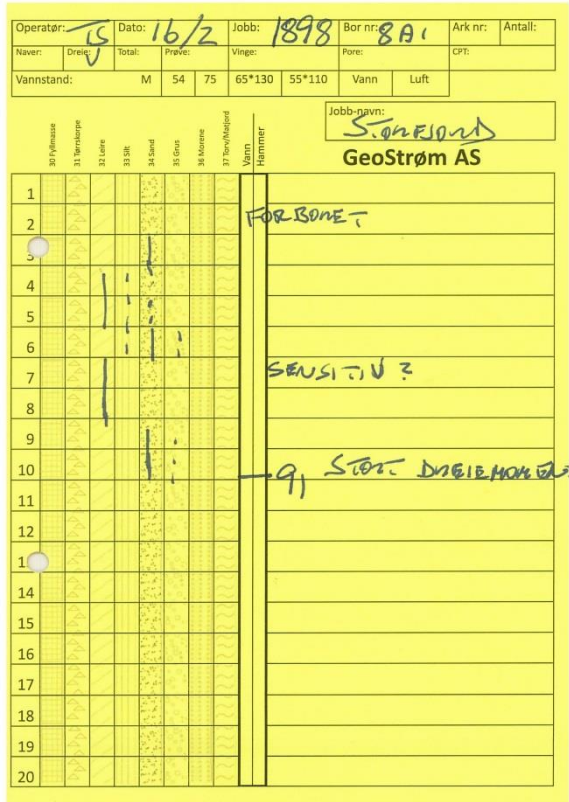 Operatør: TS Dato: 16/2 Jobb: 1898 Bor nr: 8A1 Ark nr: Antall:
Naver: Dreie: V Total: Prøve: Vinge: Pore: CPT:
Vannstand: M 54 75 65*130 55*110 Vann Luft
Jobb-navn:
STORFJORD
GeoStrøm AS
30 Fyllmasse 31 Tørrskorpe 32 Leire 33 Silt 34 Sand 35 Grus 36 Morene 37 Torv/Matjord Vann Hammer
1
2 FORBORET
3
4
5
6
7 SENSITIV ?
8
9
10 STORT DREIEMOMENT
11
12
1
14
15
16
17
18
19
20